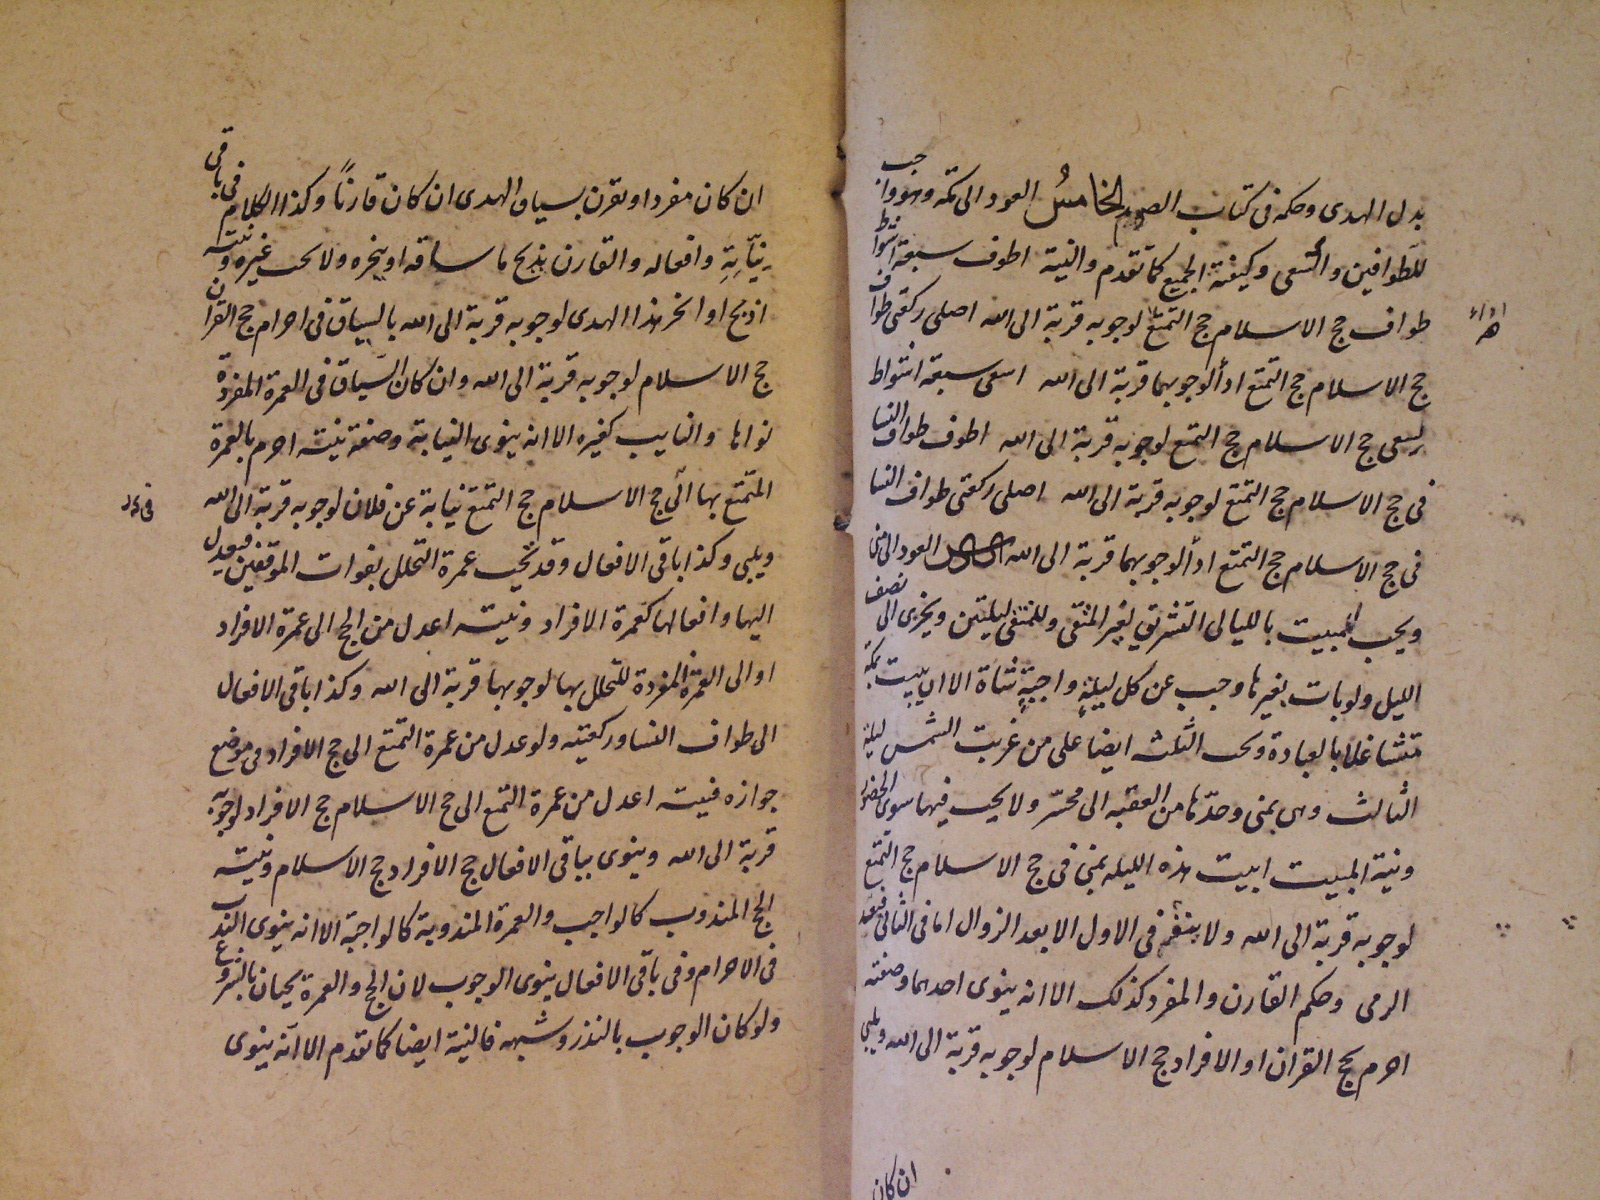 بدل الهدى وحكمه فى كتاب الصوم الخامسُ العود الى مكة وهو واجب
للطوافين والسعى وكيفية الجميع كما تقدم والنية اطوف سبعة اشواط
طواف حج الاسلام حج التمتع لوجوبه قربة الى الله اصلى ركعتى طواف
اداء
حج الاسلام حج التمتع اداً لوجوبهما قربة الى الله اسعى سبعة اشواط
لسعى حج الاسلام حج التمتع لوجوبه قربة الى الله اطوف طواف النسا
فى حج الاسلام حج التمتع لوجوبه قربة الى الله اصلى ركعتى طواف النسا
فى حج الاسلام حج التمتع اداً لوجوبهما قربة الى الله السادس العود الى منى
ويجب المبيت بالليالى التشريق لغير المتقى وللمتقى ليلتين ويجزى الى نصف
الليل ولو بات بغيرها وجب عن كل ليلةٍ واجبةٍ شاة الا ان يبيت بمكة
متشاغلا بالعبادة وىحب الثلث ايضا على من غربت الشمس ليلة
الثالث وهى بمنى وحدّها من العقبه الى محسّر ولا يجب فيهما سوى الحضور
ونية المبيت ابيت هذه الليله بمنى فى حج الاسلام حج التمتع
لوجوبه قربة الى الله ولا ينفر فى الاول الا بعد الزوال اما فى الثانى فبعد
الرمى وحكم القارن والمفرد كذلك الا انه ينوى احدهما وصفته
احرم بحج القران او الافراد حج الاسلام لوجوبه قربة الى الله ويلبى
ان كان
ان كان مفردا او يقرن بسياق الهدى ان كان قارناً وكذا الكلام فى باقى
نيّاتِهِ وافعاله والقارن يذبح ما ساقه او ينحره ولا يجب غيره ونيته
اذبح او انحر هذا الهدى لوجوبه قربة الى الله بالسياق فى احرام حج القران
حج الاسلام لوجوبه قربة الى الله وان كان السّياق فى العمرة المفردة
نواها والنايب كغيره الا انه ينوى النيابة وصفة نيته احرم بالعمرة
المتمتع بها الى حج الاسلام حج التمتع نيابة عن فلان لوجوبه قربة الى الله
ويلبى وكذا باقى الافعال وقد تجب عمرة التحلل بفوات الموقفين فيعدل
اليها وافعالها كعمرة الافراد ونيته اعدل من الحج الى عمرة الافراد
او الى العمرة المفردة للتحلل بها لوجوبها قربة الى الله وكذا باقى الافعال
الى طواف النسا وركعتيه ولو عدل من عمرة التمتع الى حج الافراد فى موضع
جوازه فنيته اعدل من عمرة التمتع الى حج الاسلام حج الافراد لوجوبه
قربة الى الله وينوى بباقى الافعال حج الافراد حج الاسلام ونيته
الحج المندوب كالواجب والعمرة المندوبة كالواجبة الا انه ينوى الندب
فى الاحرام وفى باقى الافعال ينوى الوجوب لان الحج والعمرة يجبان بالشروع
ولو كان الوجوب بالنذر وشبهه فالنية ايضا كما تقدم الا انه ينوى